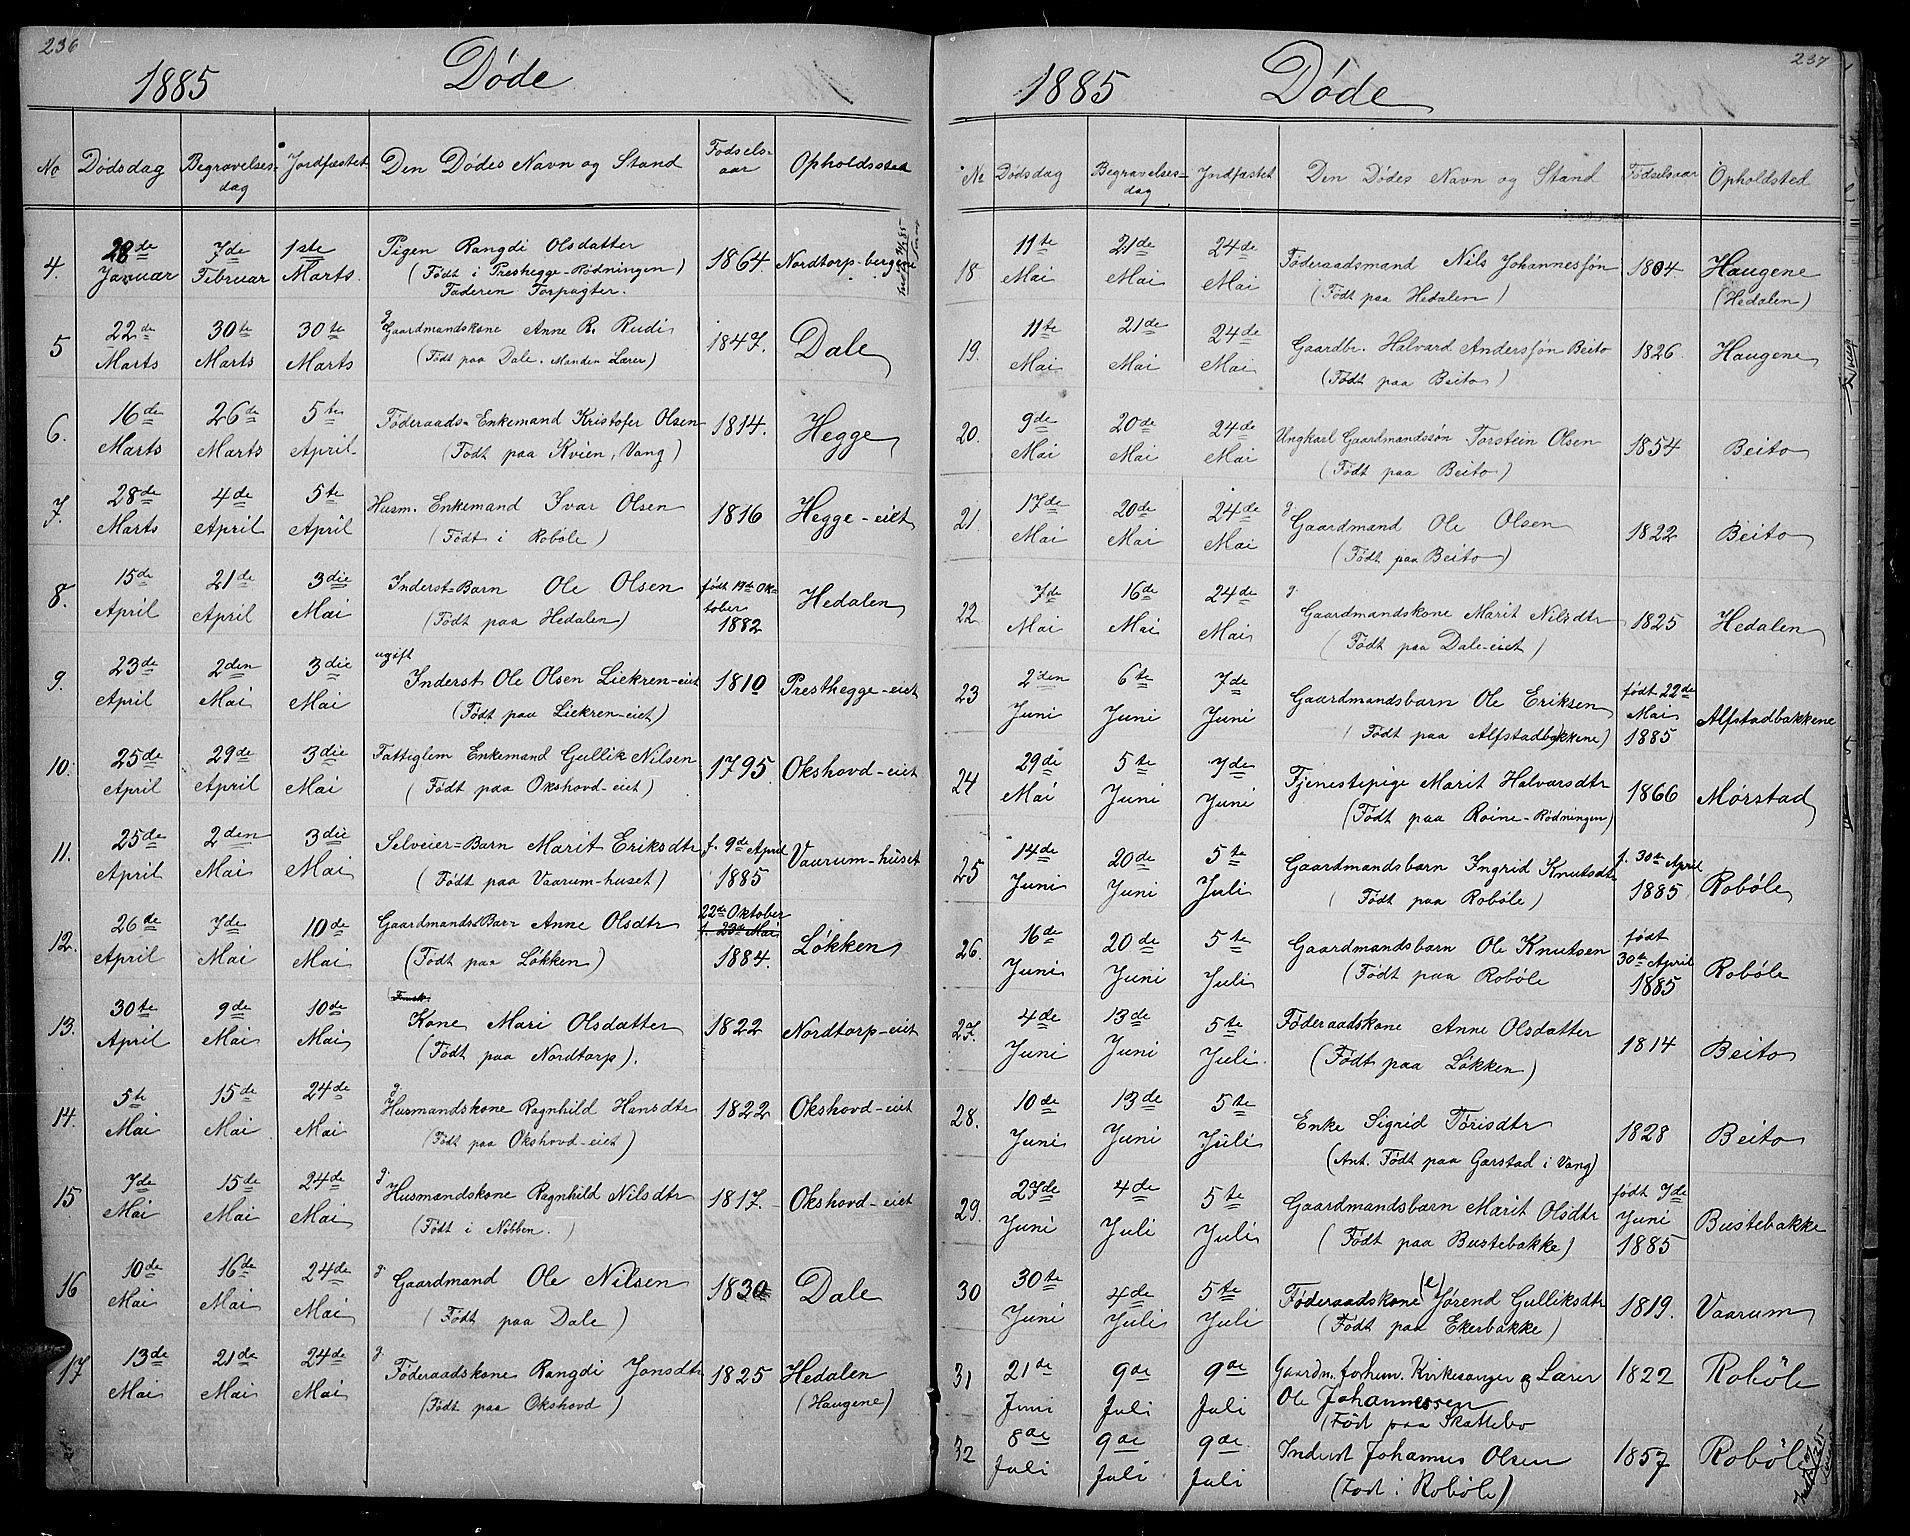 236
1885 Døde
No Dødsdag Begravelses-dag Jordfæstet Den Dødes Navn og Stand Fødselsaar Opholdssted
4. 28de Januar 7de Februar 1ste Marts Pigen Rangdi Olsdatter 1864. Nordtorp-bergene
(Født i Presthegge-Rødningen)
Faderen Forpagter.
5 22de Marts 30te Marts 30te Marts g Gaardmandskone Anne R. Rudi 1847. Dale
(Født paa Dale. Manden Lærer)
6. 16de Marts 26de Marts 5te April Føderaads-Enkemand Kristofer Olsen 1814. Hegge
(Født paa Kvien, Vang)
7. 28de Marts 4de April 5te April Husm. Enkemand Ivar Olsen 1816 Hegge-eiet
(Født i Robøle)
8. 15de April 21de April 3die Mai Inderst-Barn Ole Olsen født 19de Oktober 1882 Hedalen
(Født paa Hedalen)
9. 23de April 2den Mai 3die Mai ugift Inderst Ole Olsen Liekren-eiet 1810 Presthegge-eiet
(Født paa Liekren-eiet)
10. 25de April 29de April 3die Mai Fattiglem Enkemand Gullik Nilsen 1795 Okshovd-eiet
(Født paa Okshovd-eiet)
11. 25de April 2den Mai 3die Mai Selveier-Barn Marit Eriksdtr f. 9de April 1885 Vaarum-huset
(Født paa Vaarum-huset)
12. 26de April 7de Mai 10de Mai Gaardmands-Barn Anne Olsdtr 22de Oktober f. 23de Mai 1884. Løkken
(Født paa Løkken)
13. 30te April 9de Mai 10de Mai Kone Mari Olsdatter 1822 Nordtorp-eiet
(Født paa Nordtorp).
14. 5te Mai 15de Mai 24de Mai g Husmandskone Ragnhild Hansdtr 1822 Okshovd-eiet
(Født paa Okshovd-eiet)
15 7de Mai 15de Mai 24de Mai g Husmandskone Ragnhild Nilsdtr 1817. Okshovd-eiet
(Født i Nøbben.)
16 10de Mai 16de Mai 24de Mai g. Gaardmand Ole Nilsen 1830 Dale
(Født paa Dale)
17 13de Mai 21de Mai 24de Mai g. Føderaadskone Rangdi Jonsdtr 1825 Hedalen
(Født paa Okshovd) (Haugene)
237
1885 Døde
No Dødsdag Begravelses-dag Jordfæstet Den Dødes Navn og Stand Fødselsaar Opholdsted
18 11te Mai 21de Mai 24de Mai Føderaadsmand Nils Johannesføn 1804 Haugene
(Født paa Hedalen) (Hedalen)
19. 11te Mai 21de Mai 24de Mai Gaardbr. Halvard Andersføn Beito 1826. Haugene
(Født paa Beito)
20. 9de Mai 20de Mai 24de Mai Ungkarl Gaardmandssøn Torstein Olsen 1854 Beito
(Født paa Beito)
21 17de Mai 20de Mai 24de Mai g Gaardmand Ole Olsen 1822 Beito
(Født paa Beito)
22 7de Mai 16de Mai 24de Mai g. Gaardmandskone Marit Nilsdtr 1825 Hedalen
(Født paa Dale-eiet)
23 2den Juni 6te Juni 7de Juni Gaardmandsbarn Ole Eriksen født 22de Mai 1885 Alfstadbakkene
(Født paa Alfstadbakkene)
24 29de Mai 5te Juni 7de Juni Tjenestepige Marit Halvarsdtr 1866 Mørstad
(Født paa Roine-Rødningen)
25 14de Juni 20de Juni 5te Juli Gaardmandsbarn Ingrid Knutsdtr f. 30te April 1885 Robøle
(Født paa Robøle)
26. 16de Juni 20de Juni 5te Juli Gaardmandsbarn Ole Knutsen født 30te April 1885 Robøle
(Født paa Robøle
27. 4de Juni 13de Juni 5te Juli. Føderaadskone Anne Olsdatter 1814 Beito
(Født paa Løkken)
28. 10de Juni 13de Juni 5te Juli Enke Sigrid Tørisdtr 1828 Beito
(Ant. Født paa Garstad i Vang)
29. 27de Juni 4de Juli 5te Juli Gaardmandsbarn Marit Olsdtr født 7de Juni 1885 Bustebakke
(Født paa Bustebakke)
30 30te Juni 4de Juli 5te Juli Føderaadskone (e) Jørend Gulliksdtr 1819. Vaarum
(Født paa Ekerbakke)
31 21de Juni 9de Juli 9de Juli Gaardm. forhenv. Kirkesanger og Lærer 1822 Robøle
Ole Johannessen
(Født paa Skattebo
32 8de Juli 9de Juli 9de Juli Inderst Johannes Olsen 1857 Robøle
(Fød i Robøle)